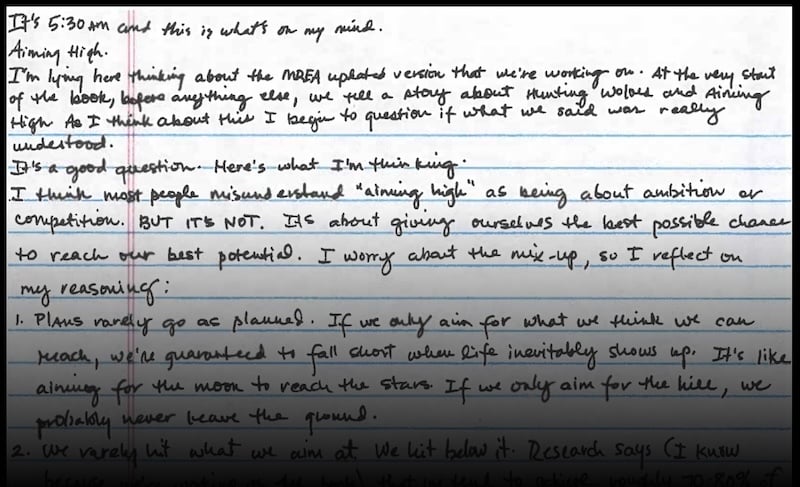 It's 5:30 AM and this is what's on my mind.
Aiming High.
I'm lying here thinking about the MREA updated version that we're working on. At the very start
of the book, before anything else, we tell a story about Hunting Wolves and Aiming
High. As I think about this I begin to question if what we said was really
understood.
It's a good question. Here's what I'm thinking.
I think most people misunderstand "aiming high" as being about ambition or
competition. BUT IT'S NOT. It's about giving ourselves the best possible chance
to reach our best potential. I worry about the mix-up, so I reflect on
my reasoning:
1. Plans rarely go as planned. If we only aim for what we think we can
reach, we're guaranteed to fall short when life inevitably shows up. It's like
aiming for the moon to reach the stars. If we only aim for the hill, we
probably never leave the ground.
2. We rarely hit what we aim at. We hit below it. Research says (I know
because